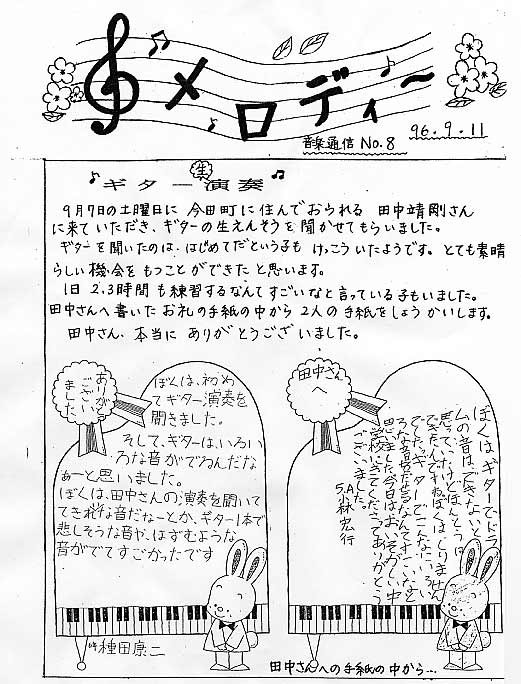 メロディー
音楽通信 No.8
96.9.11
ギター生演奏
9月7日の土曜日に 今田町に住んでおられる 田中靖剛さん
に来ていただき、ギターの生えんそうを聞かせてもらいました。
ギターを聞いたのは、はじめてだという子も けっこういたようです。とても素晴
らしい機会をもつことができたと思います。
1日 2.3時間も練習するなんてすごいなと言っている子もいました。
田中さんへ書いたお礼の手紙の中から 2人の手紙をしょうかいします。
田中さん、本当に ありがとうございました。
ありがとう
ござい
ました
ぼくは、初め
てギター演奏を
聞きました。
そして、ギターは、いろい
ろな音がでるんだな
ぁーと思いました。
ぼくは、田中さんの演奏を聞いて
てきれいな音だなーとか、ギター1本で
悲しそうな音や、はずむような
音がでてすごかったです
種田康二
田中さん
へ
ぼくは、ギターでドラ
ムの音は、できないと
思っていたけどほんとうは
できたんですね。ぼくはしりません
でした。ギターでこんなにいろい
ろな音がだせるなんてすごいなと
思いました。今日はおいそがしい中
学校にきてくださってありがとう
ございました。
5.A 小林宏行
田中さんへの手紙の中から…